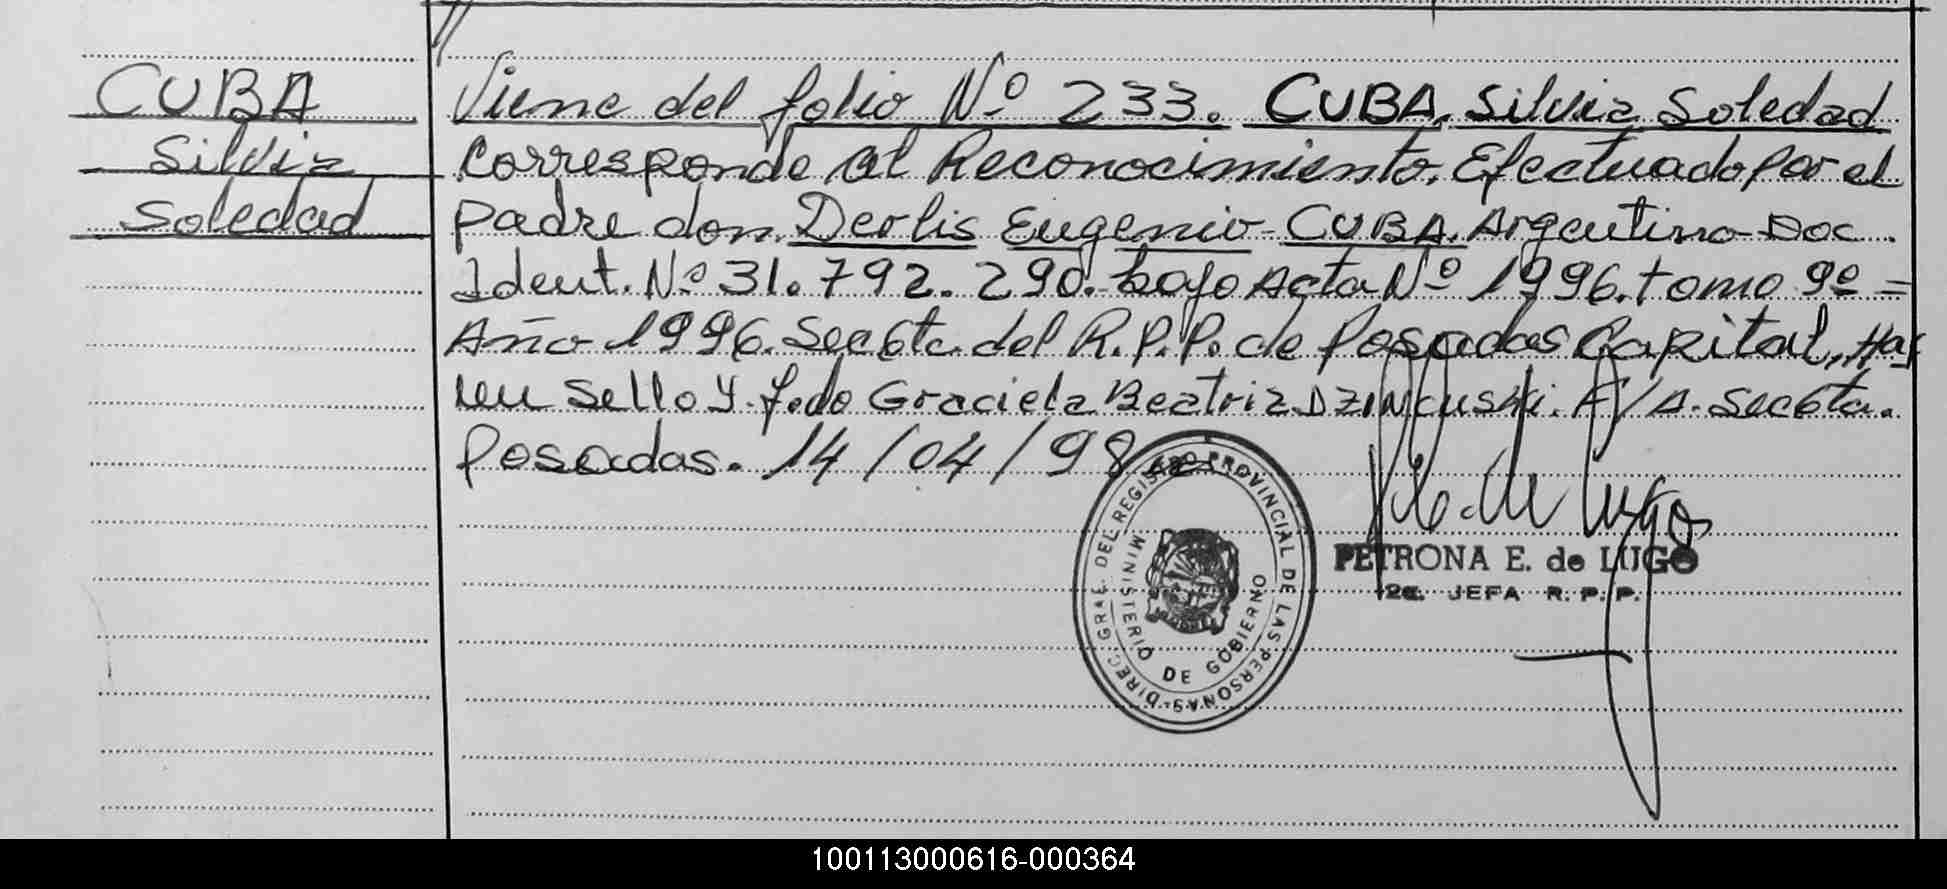 CUBA
Silvia
Soledad
Viene del folio Nº 233. CUBA, Silvia Soledad
Corresponde al Reconocimiento, Efectuado por el
padre don Derlis Eugenio CUBA. Argentino Doc.
Ident. Nº 31.792.290. bajo Acta Nº 1996. tomo 9º =
Año 1996. Sec 6ta. del R.P.P. de Posadas Capital, Hay
un Sello y f.do Graciela Beatriz DZINCUSKI. A/A. Sec 6ta.
Posadas. 14/04/98
DIREC. GRAL. DEL REGISTRO PROVINCIAL DE LAS PERSONAS
MINISTERIO DE GOBIERNO
P. E. de Lugo
PETRONA E. de LUGO
2a. JEFA R. P. P.
100113000616-000364